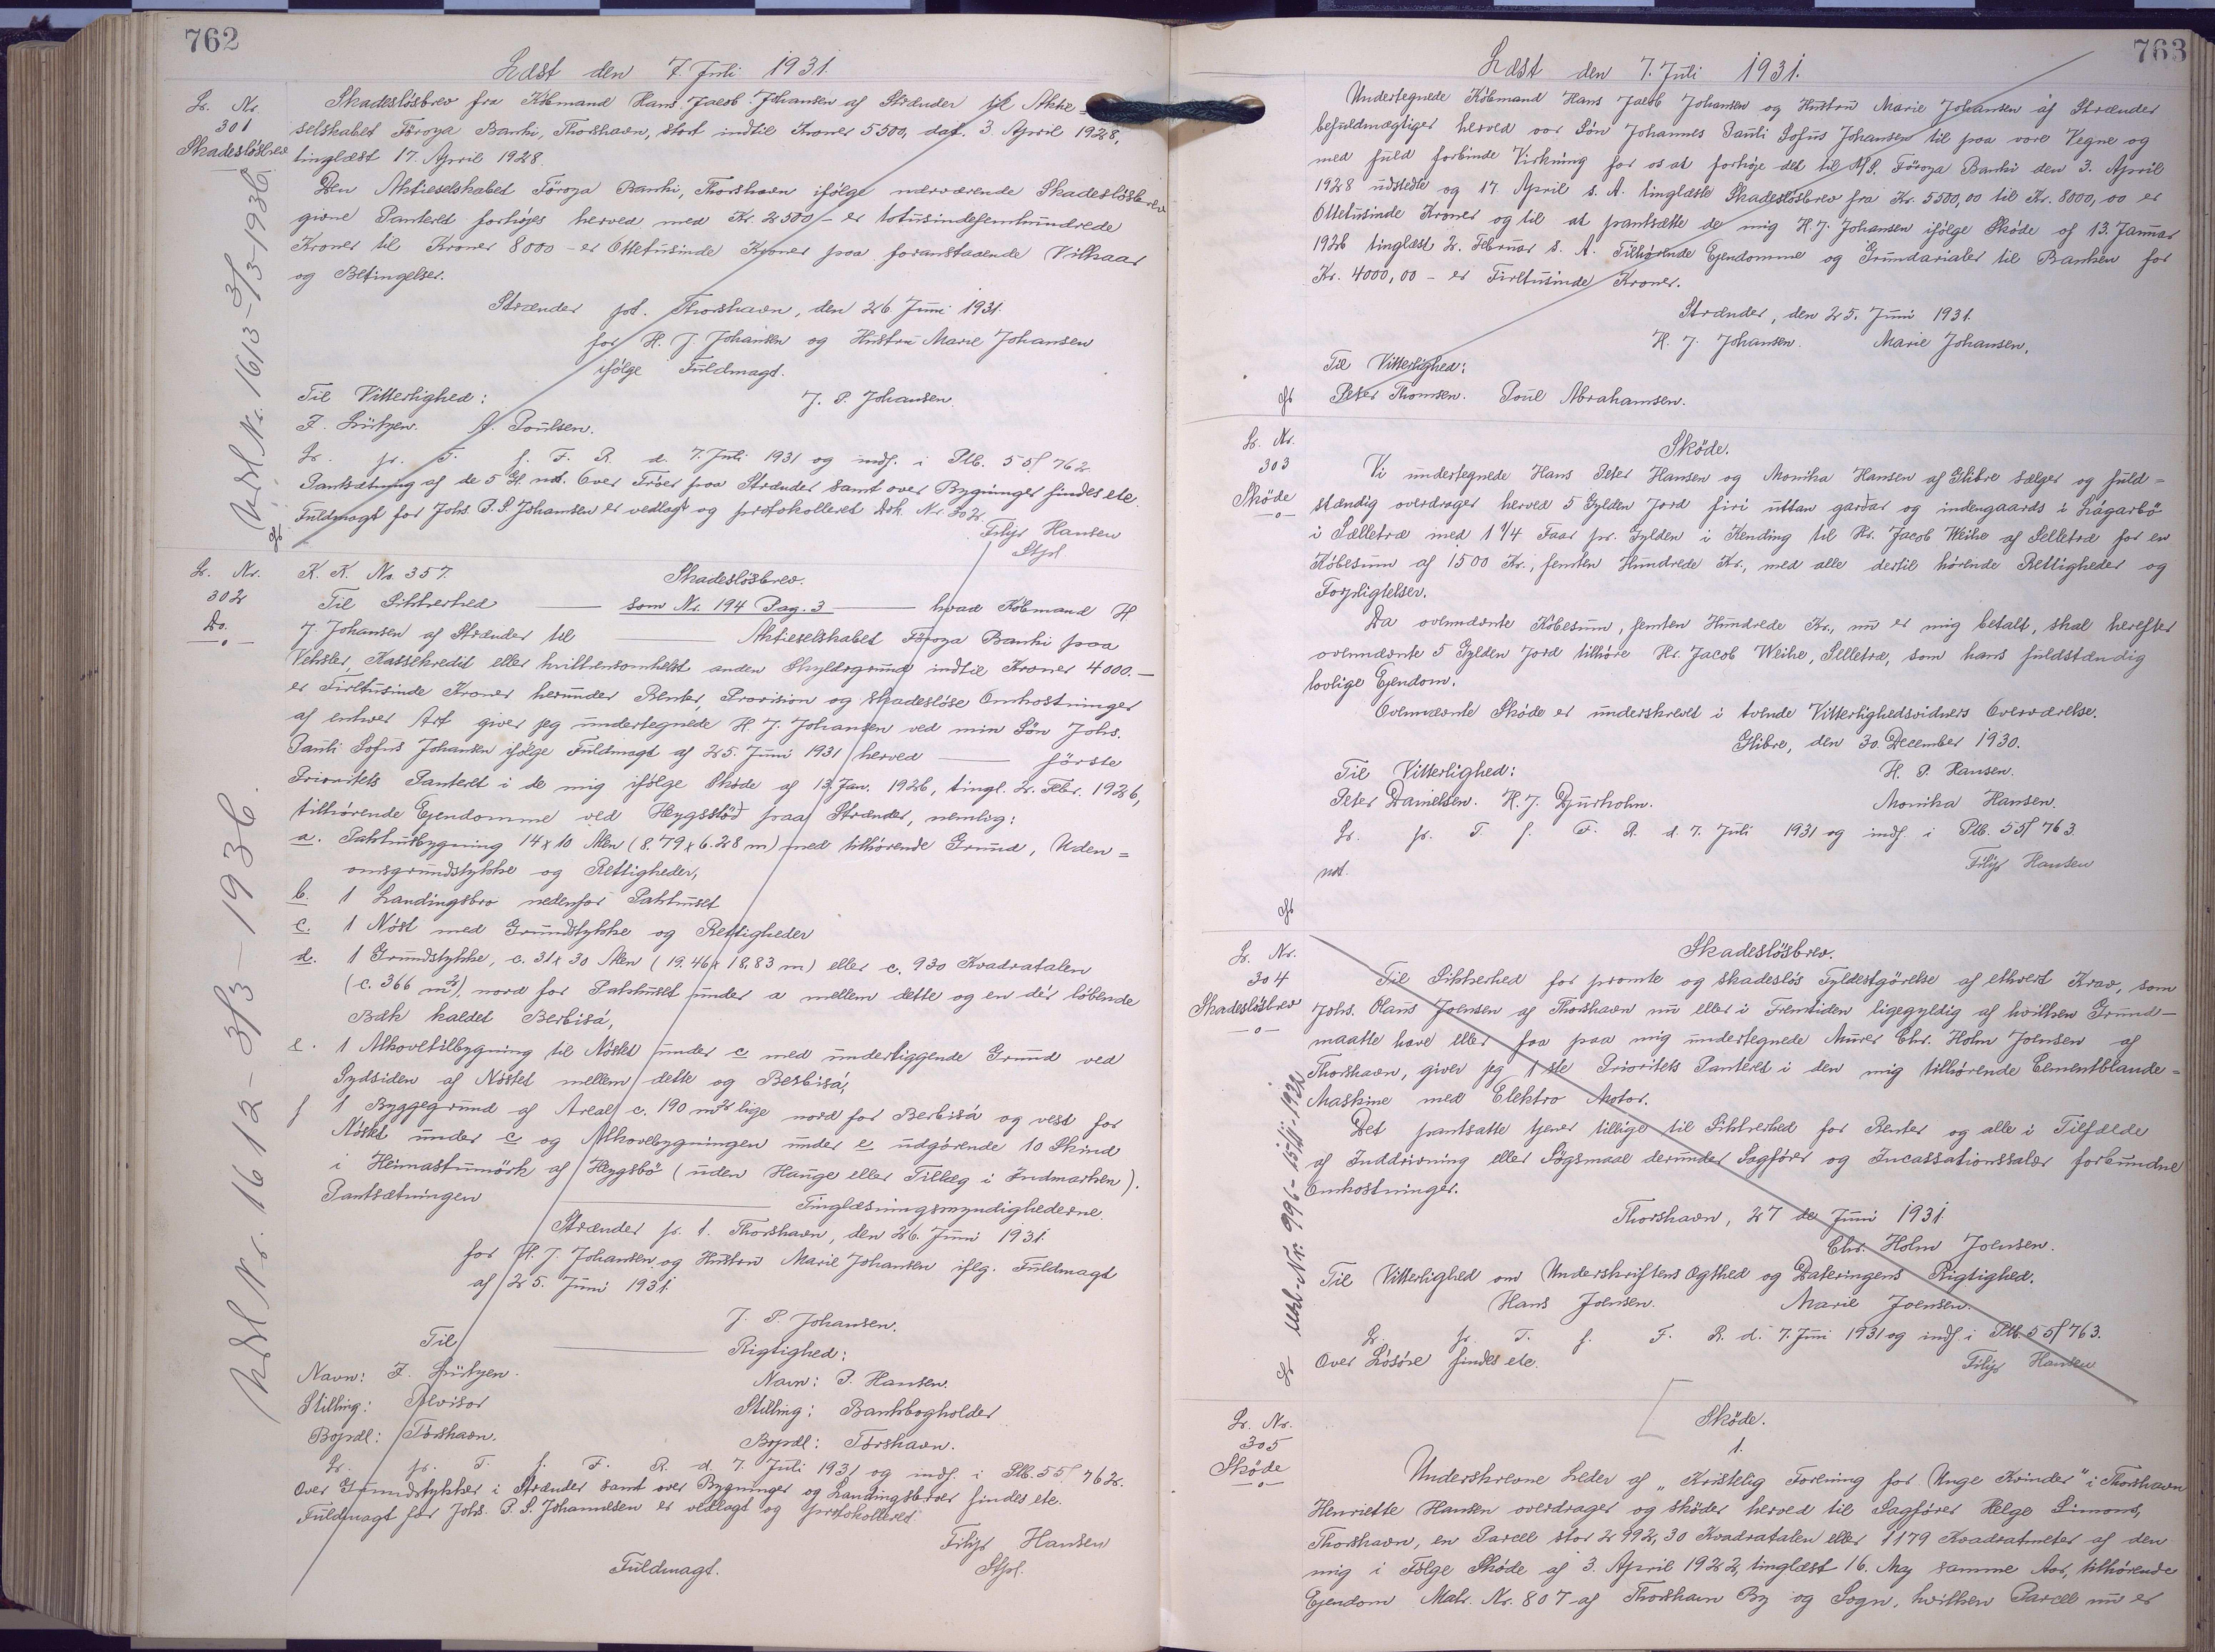 762
Læst den 7. Juli 1931.
Lb. Nr.
301
Skadesløsbrev
Udsl Nr. 1613 - 3/3 - 1936
Skadesløsbrev fra Købmand Hans Jacob Johansen af Strænder til Aktie-
selskabet Föroya Banki, Thorshavn, stort indtil Kroner 5500, dat. 3. April 1928,
tinglæst 17. April 1928.
Den Aktieselskabet Föroya Banki, Thorshavn ifölge nærværende Skadeslösbrev
givne Panteret forhöjes herved med Kr. 2500 - er totusindefemhundrede
Kroner til Kroner 8000 - er Ottetusinde Kroner paa foranstaaende Vilkaar
og Betingelser.
Strænder pt. Thorshavn, den 26 Juni 1931.
for H. J. Johansen og Hustru Marie Johansen
ifölge Fuldmagt.
Til Vitterlighed:
J. P. Johansen
F. Lützen. A. Poulsen.
Lb. pr. T. f. F. R. d. 7. Juli 1931 og indf. i Ptb. 55 f 762.
Pantsætning af de 5 Gl. nst. 6ver Tröer paa Strænder samt over Bygninger findes etc.
Fuldmagt for Johs. P. S. Johansen er vedlagt og protokolleret Dok. Nr. 302
Filip Hansen
Stpl.
Lb. Nr.
302
Do.
Udsl Nr. 1612 - 3/3 - 1936.
K. K. No. 357. Skadeslösbrev.
Til Sikkerhed som Nr. 194 Pag. 3 hvad Købmand H
J. Johansen af Strænder til Aktieselskabet Föroya Banki paa
Veksler, Kassekredit eller hvilkensomhelst anden Skyldsgrund indtil Kroner 4000.-
er Firetusinde Kroner herunder Renter, Provision og skadeslöse Omkostninger
af enhver Art giver jeg undertegnede H. J. Johansen ved min Sön Johs.
Pauli Sofus Johansen ifölge Fuldmagt af 25. Juni 1931 herved förste
Prioritets Panteret i de mig ifölge Sköde af 13 Jan. 1926, tingl. 2. Febr. 1926,
tilhørende Ejendomme ved Heygsstöð paa Strænder, nemlig:
a. Pakhusbygning 14 x 10 Alen (8.79 x 6.28 m) med tilhørende Grund, Uden=
omsgrundstykke og Rettigheder,
b. 1 Landingsbro nedenfor Pakhuset
c. 1 Nöst med Grundstykke og Rettigheder
d. 1 Grundstykke, c. 31 x 30 Alen (19.46 x 18.83 m) eller c. 930 Kvadratalen
(c. 366 m²), nord for Pakhuset under a mellem dette og en der löbende
Bæk kaldet Berbisá,
e. 1 Alkovetilbygning til Nöstet under c med underliggende Grund ved
Sydsiden af Nöstet mellem dette og Berbisá,
f 1 Byggegrund af Areal c. 190 m² lige nord for Berbisá og vest for
Nöstet under c og Alkovebygningen under e udgörende 10 Skind
i Heimastumörk af Heygsbö (uden Hauge eller Tillæg i Indmarken).
Pantsætningen Tinglæsningsmyndighederne.
Strænder p. t. Thorshavn, den 26. Juni 1931.
for H. J. Johansen og Hustru Marie Johansen iflg. Fuldmagt
af 25. Juni 1931.
J. P. Johansen.
Til Rigtighed:
Navn: F. Lützen. Navn: P. Hansen.
Stilling: Revisor Stilling: Bankbogholder
Bopæl: Tórshavn. Bopæl: Tórshavn.
Lb. pr. T. f. F. R. d. 7. Juli 1931 og indf. i Ptb. 55 f 762.
Over Grundstykker i Strænder samt over Bygninger og Landingsbroer findes etc.
Fuldmagt for Johs. P. S. Johannesen er vedlagt og protokolleret
Filip Hansen
Stpl.
Fuldmagt.
763
Læst den 7. Juli 1931.
Undertegnede Købmand Hans Jacob Johansen og Hustru Marie Johansen af Strænder
befuldmægtiger herved vor Sön Johannes Pauli Sofus Johansen til paa vore Vegne og
med fuld forbinde Virkning for os at forhöje det til A/S. Föroya Banki den 3. April
1928 udstedte og 17. April s. A. tinglæste Skadeslösbrev fra Kr. 5500,00 til Kr. 8000,00 er
Ottetusinde Kroner og til at pantsætte de mig H. J. Johansen ifölge Sköde af 13. Januar
1926 tinglæst 2. Februar s. A. Tilhørende Ejendomme og Grundarealer til Banken for
Kr. 4000,00 - er Firetusinde Kroner.
Strænder, den 25. Juni 1931.
H. J. Johansen. Marie Johansen.
Til Vitterlighed:
Peter Thomsen. Poul Abrahamsen.
Lb. Nr.
303
Sköde
Sköde.
Vi undertegnede Hans Peter Hansen og Monika Hansen af Glibre sælger og fuld=
stændig overdrager herved 5 Gylden Jord firi uttan gardar og indengaards i Lágarbö
i Sælletræ med 1 1/4 Faar pr. Gylden i Kending til Hr. Jacob Weihe af Selletræ for en
Købesum af 1500 Kr., femten Hundrede Kr., med alle dertil hörende Rettigheder og
Forpligtelser.
Da ovennævnte Købesum, femten Hundrede Kr., nu er mig betalt, skal herefter
ovennævnte 5 Gylden Jord tilhöre Hr. Jacob Weihe, Selletræ, som hans fuldstændig
lovlige Ejendom.
Ovennævnte Sköde er underskrevet i tvende Vitterlighedsvidners Overværelse.
Glibre, den 30. December 1930.
Til Vitterlighed: H. P. Hansen.
Peter Danielsen. H. J. Djurholm. Monika Hansen.
Lb. pr. T. f. F. R. d. 7. Juli 1931 og indf. i Ptb. 55 f 763.
not. Filip Hansen
Lb. Nr.
304
Skadeslösbrev
Udsl. Nr. 996 - 15/11 - 1932
Skadeslösbrev.
Til Sikkerhed for promte og skadeslös Fyldestgörelse af ethvert Krav, som
Johs. Olaus Joensen af Thorshavn nu eller i Fremtiden ligegyldig af hvilken Grund-
maatte have eller faa paa mig undertegnede Murer Chr. Holm Joensen af
Thorshavn, giver jeg 1 ste Prioritets Panteret i den mig tilhörende Cementblande=
Maskine med Elektro Motor.
Det pantsatte tjener tillige til Sikkerhed for Renter og alle i Tilfælde
af Inddrivning eller Sögsmaal derunder Sagförer og Incassationssalær forbundne
Omkostninger.
Thorshavn, 27 de Juni 1931.
Chr. Holm Joensen.
Til Vitterlighed om Underskriftens Ægthed og Dateringens Rigtighed.
Hans Joensen. Marie Joensen.
Lb. pr. T. f. F. R. d. 7. Juni 1931 og indf. i Ptb. 55 f 763.
Over Lösöre findes etc. Filip Hansen
Lb. Nr.
305
Sköde
Sköde.
1.
Underskrevne Leder af „Kristelig Forening for Unge Kvinder" i Thorshavn
Henriette Hansen overdrager og sköder herved til Sagförer Helge Simons,
Thorshavn, en Parcel stor 2992,30 Kvadratalen eller 1179 Kvadratmeter af den
mig i Fölge Sköde af 3. April 1922, tinglæst 16. Maj samme Aar, tilhørende
Ejendom Matr. Nr. 807 af Thorshavn By og Sogn, hvilken Parcel nu er